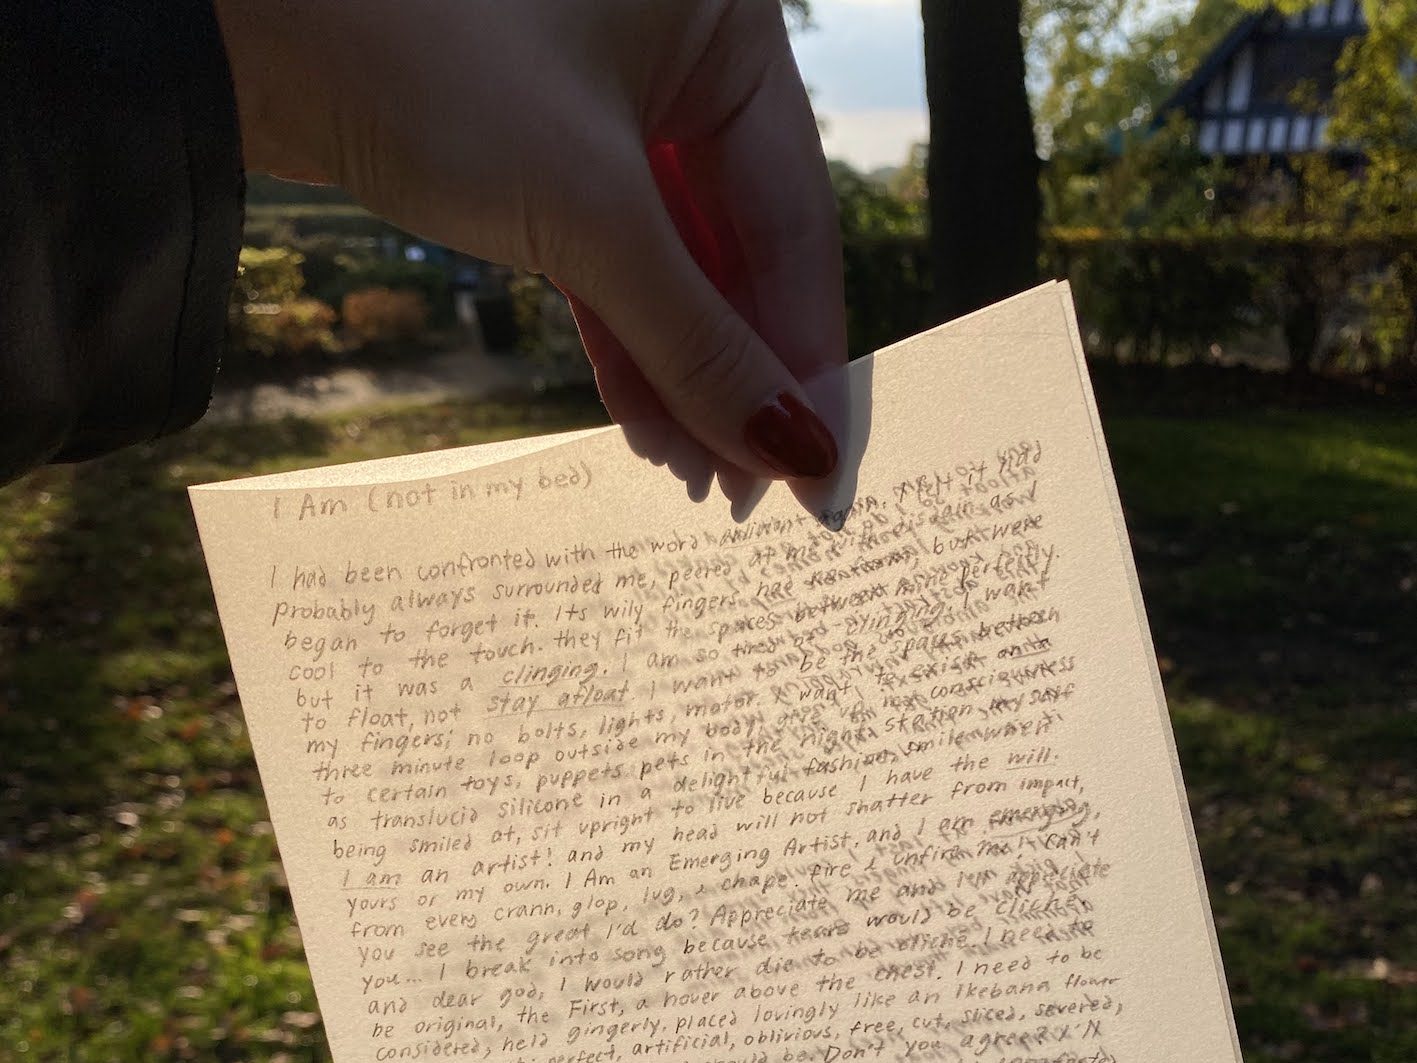 I Am (not in my bed)
I had been confronted with the word again.
probably always surrounded me, peered at me with disdain as I
began to forget it. Its wily fingers had but were
cool to the touch. they fit the spaces between mine perfectly.
but it was a clinging. I am so clinging. I want
to float, not stay afloat. I want to be the spaces between
my fingers; no bolts, lights, motor. I want to exist
three minute loop outside my body, give up my consciousness
to certain toys, puppets pets in the night station, myself
as translucid silicone in a delightful fashion, smile when
being smiled at, sit upright to live because I have the will.
I am an artist! and my head will not shatter from impact,
yours or my own. I Am an Emerging Artist, and I am emerging,
from every crann, glop, lug, & chape. fire & unfire me! Can't
you see the great I'd do? Appreciate me and I'll appreciate
you... I break into song because tears would be cliche,
and dear god, I would rather die to be cliche. I need to
be original, the First, a hover above the chest. I need to be
considered, held gingerly. placed lovingly like an Ikebana flower
perfect, artificial, oblivious, free, cut, sliced, severed,
should be. Don't you agree?